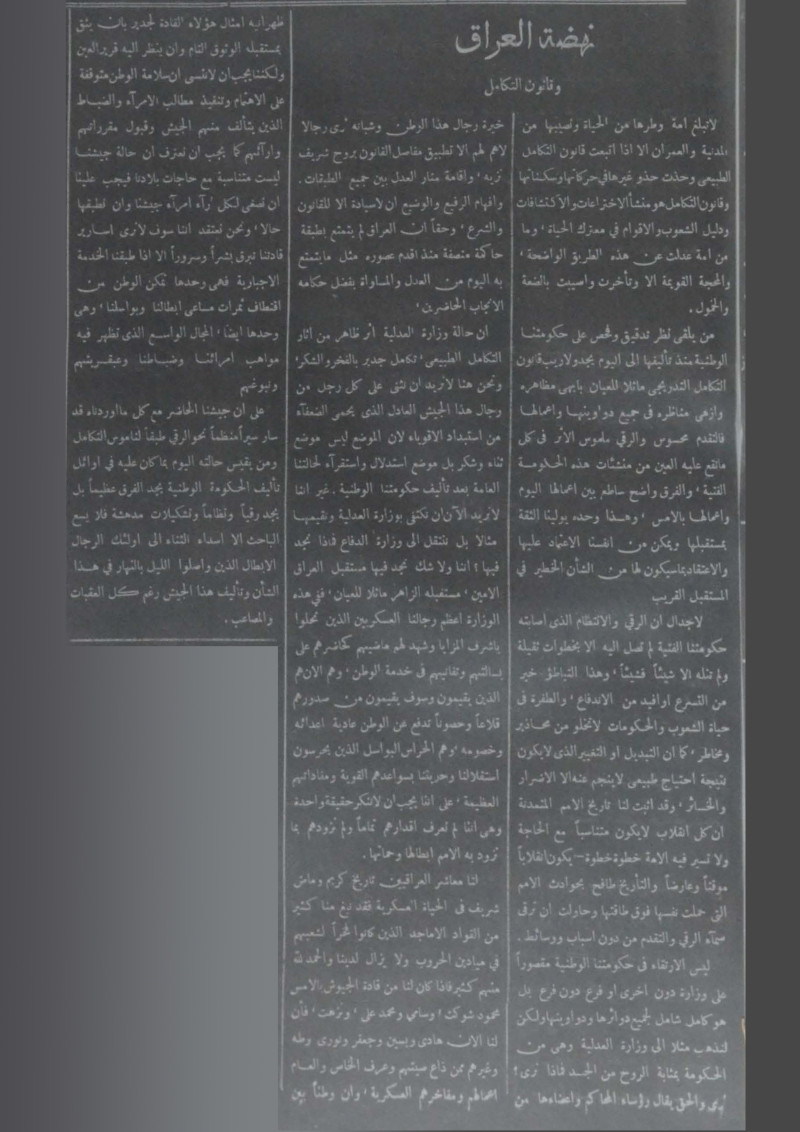 نهضة العراق
وقانون التكامل
لاتبلغ امة وطرها من الحياة ونصيبها من
المدنية والعمران الا اذا اتبعت قانون التكامل
الطبيعي وحذت حذو غيرها في حركاتها وسكناتها
وقانون التكامل هو منشأ الاختراعات والاكتشافات
ودليل الشعوب والاقوام في معترك الحياة ، وما
من امة عدلت عن هذه الطريق الواضحة ،
والمحجة القويمة الا وتأخرت واصيبت بالضعة
والخمول .
من يلقى نظر تدقيق وفحص على حكومتنا
الوطنية منذ تأليفها الى اليوم يجد ولاريب قانون
التكامل التدريجى ماثلا للعيان بابهى مظاهره
وازهى مناظره فى جميع دواوينها واعمالها
فالتقدم محسوس والرقي ملموس الأثر فى كل
ماتقع عليه العين من منشئات هذه الحكومة
الفتية ، والفرق واضح ساطع بين اعمالها اليوم
واعمالها بالامس ، وهذا وحده يولينا الثقة
بمستقبلها ويمكن من انفسنا الاعتماد عليها
والاعتقاد بماسيكون لها من الشأن الخطير في
المستقبل القريب
لاجدال ان الرقي والانتظام الذى اصابته
حكومتنا الفتية لم تصل اليه الا بخطوات ثقيلة
ولم تنله الا شيئاً فشيئاً ، وهذا التباطؤ خير
من التسرع اوافيد من الاندفاع ، والطفرة فى
حياة الشعوب والحكومات لاتخلو من محاذير
ومخاطر ، كما ان التبديل او التغيير الذى لايكون
نتيجة احتياج طبيعي لاينجم عنه الا الاضرار
والخسائر ، وقد اثبت لنا تاريخ الامم المتمدنة
ان كل انقلاب لايكون متناسباً مع الحاجة
ولا تسير فيه الامة خطوة خطوة – يكون انقلاباً
موقتاً وعارضاً والتأريخ طافح بحوادث الامم
التى حملت نفسها فوق طاقتها وحاولت ان ترقى
سمآء الرقي والتقدم من دون اسباب ووسائط .
ليس الارتقاء فى حكومتنا الوطنية مقصوراً
على وزارة دون اخرى او فرع دون فرع بل
هو كامل شامل لجميع دوائرها ودواوينها ولكن
لنذهب مثلا الى وزارة العدلية وهى من
الحكومة بمثابة الروح من الجسد فاذا نرى ؟
نرى والحق يقال رؤساء المحاكم واعضاءها من
خيرة رجال هذا الوطن وشبانه نرى رجالا
لاهم لهم الا تطبيق مفاصل القانون بروح شريف
نزيه ، واقامة منار العدل بين جميع الطبقات .
وافهام الرفيع والوضيع ان لاسيادة الا للقانون
والشرع ، وحقاً ان العراق لم يتمتع بطبقة
حاكمة منصفة منذ اقدم عصوره مثل مايتمتع
به اليوم من العدل والمساواة بفضل حكامه
الانجاب الحاضرين ،
ان حالة وزارة العدلية اثر ظاهر من اثار
التكامل الطبيعي ، تكامل جدير بالفخر والشكر ،
ونحن هنا لانريد ان نثنى على كل رجل من
رجال هذا الجيش العادل الذى يحمى الضعفآء
من استبداد الاقوياء لان الموضع ليس موضع
ثناء وشكر بل موضع استدلال واستقرآء لحالتنا
العامة بعد تأليف حكومتنا الوطنية . غير اننا
لانريد الآن ان نكتفى بوزارة العدلية ونقيمها
مثالا بل ننتقل الى وزارة الدفاع فماذا نجد
فيها ؟ اننا ولا شك نجد فيها مستقبل العراق
الامين ، مستقبله الزاهر ماثلا للعيان ، فني هذه
الوزارة اعظم رجالنا العسكريين الذين تحلوا
باشرف المزايا وشهد لهم ماضيهم كحاضرهم على
بسالتهم وتفانيهم في خدمة الوطن ، وهم الان هم
الذين يقيمون وسوف يقيمون من صدورهم
قلاعاً وحصوناً تدفع عن الوطن عادية اعدائه
وخصومه ، وهم الحراس البواسل الذين يحرسون
استقلالنا وحريتنا بسواعدهم القوية ومفاداتهم
العظيمة ، على اننا يجب ان لاننكر حقيقة واحدة
وهى اننا لم نعرف اقدارهم تماماً ولم نزودهم بما
تزود به الامم ابطالها وحماتها .
لنا معاشر العراقيين تاريخ كريم وماض
شريف فى الحياة العسكرية فقد نبغ منا كثير
من القواد الاماجد الذين كانوا فخراً لشعبهم
في ميادين الحروب ولا يزال لدينا والحمد لله
منهم كثير فاذا كان لنا من قادة الجيوش بالامس
محمود شوكت ؛ وسامي ومحمد على ، ونزهت ، فأن
لنا الان هادى ويسين وجعفر ونورى وطه
وغيرهم ممن ذاع صيتهم وعرف الخاص والعام
اعمالهم ومفاخرهم العسكرية ، وان وطناً بين
ظهرانيه امثال هؤلاء القادة لجدير بان يثق
بمستقبله الوثوق التام وان ينظر اليه قرير العين
ولكننا يجب ان لاننسى ان سلامة الوطن متوقفة
على الاهتمام وتنفيذ مطالب الامرآء والضباط
الذين يتألف منهم الجيش وقبول مقرراتهم
وارآئهم كما يجب ان نعترف ان حالة جيشنا
ليست متناسبة مع حاجات بلادنا فيجب علينا
ان نصغى لكل رآء امرآء جيشنا وان نطبقها
حالا ، ونحن نعتقد اننا سوف لانرى اسارير
قادتنا تبرق بشراً وسروراً الا اذا طبقنا الخدمة
الاجبارية فهى وحدها تمكن الوطن من
اقتطاف ثمرات مساعى ابطالنا وبواسلنا ، وهى
وحدها ايضا ، المجال الواسع الذى تظهر فيه
مواهب امرائنا وضباطنا وعبقريتهم
ونبوغهم
على ان جيشنا الحاضر مع كل مااوردناه قد
سار سيراً منظماً نحو الرقي طبقاً لناموس التكامل
ومن يقيس حالته اليوم بما كان عليه فى اوائل
تأليف الحكومة الوطنية يجد الفرق عظيماً بل
يجد رقياً ونظاماً وتشكيلات مدهشة فلا يسع
الباحث الا اسداء الثناء الى اولئك الرجال
الابطال الذين واصلوا الليل بالنهار في هذا
الشأن وتأليف هذا الجيش رغم كل العقبات
والمصاعب .